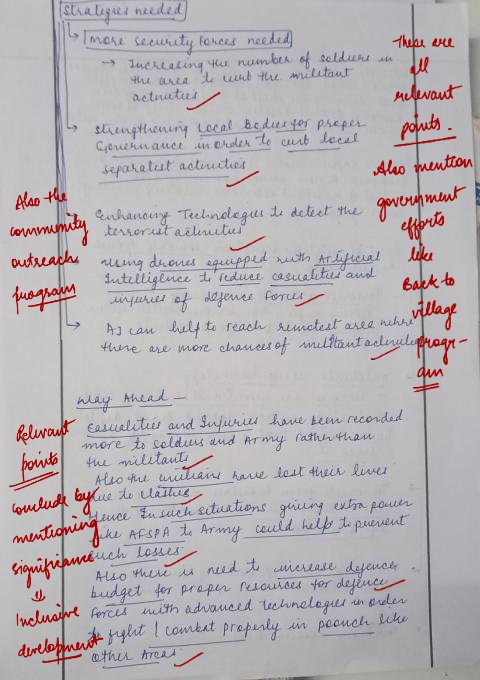 Strategies needed
More Security Forces needed
→ Increasing the number of soldiers in
the area to curb the militant
activities
Strengthening Local Bodies for proper
Governance in order to curb local
separatist activities
Enhancing Technologies to detect the
terrorist activities
Using drones equipped with Artificial
Intelligence to reduce casualities and
injuries of defence Forces
AI can help to reach remotest area where
there are more chances of militant activities
Way Ahead -
Casualities and Injuries have been recorded
more to soldiers and Army rather than
the militants
Also the civilians have lost their lives
due to clashes
Hence In such situations giving extra power
like AFSPA to Army could help to prevent
such losses
Also there is need to increase defence
budget for proper resources for defence
Forces with advanced Technologies in order
to fight / combat properly in poonch like
other Areas
These are
all
relevant
points.
Also mention
government
efforts
like
Back to
village
progr-
am
Also the
community
outreach
program
Relevant
points
conclude by
mentioning
significance
Inclusive
development